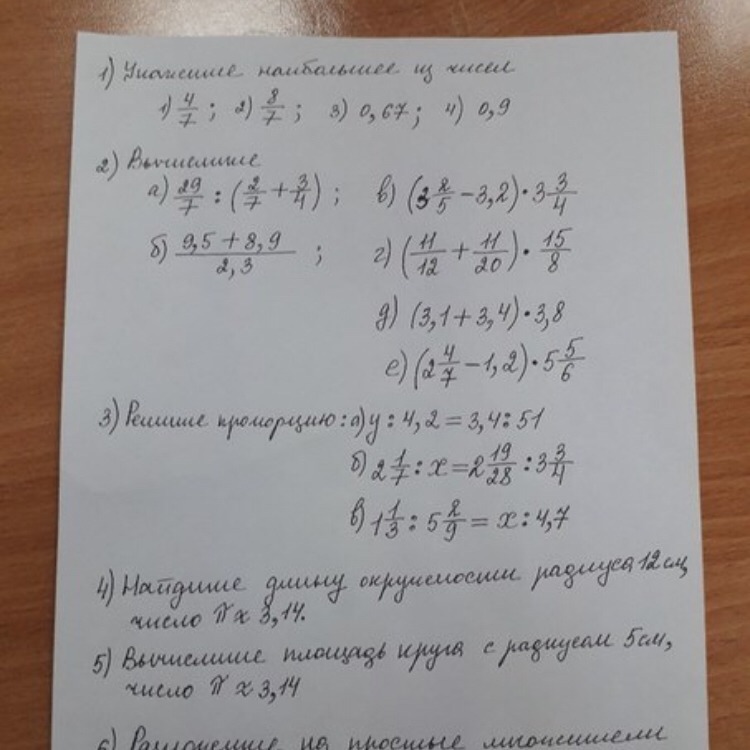 1) Укажите наибольшее из чисел
1) 4/7 ; 2) 8/7 ; 3) 0,67 ; 4) 0,9
2) Вычислите
а) 29/7 : (2/7 + 3/4) ; в) (3 2/5 − 3,2) · 3 3/4
б) (9,5 + 8,9)/2,3 ; г) (11/12 + 11/20) · 15/8
д) (3,1 + 3,4) · 3,8
е) (2 4/7 − 1,2) · 5 5/6
3) Решите пропорцию: а) у : 4,2 = 3,4 : 51
б) 2 1/7 : х = 2 19/28 : 3 3/4
в) 1 1/3 : 5 2/9 = х : 4,7
4) Найдите длину окружности радиуса 12 см,
число π ≈ 3,14.
5) Вычислите площадь круга с радиусом 5 см,
число π ≈ 3,14
6) Разложите на простые множители